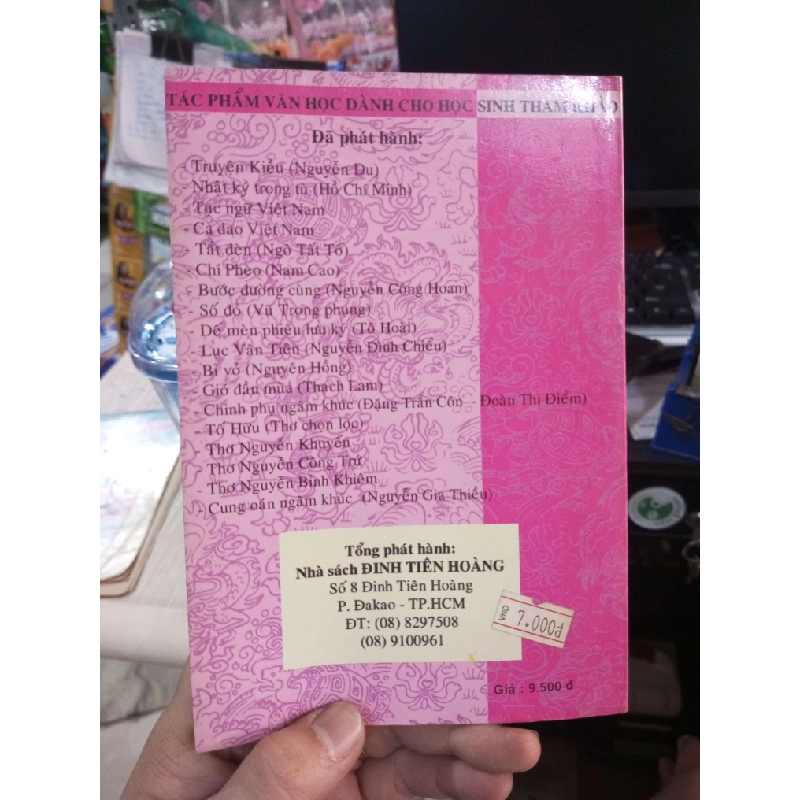 TÁC PHẨM VĂN HỌC DÀNH CHO HỌC SINH THAM KHẢO
Đã phát hành:
- Truyện Kiều (Nguyễn Du)
- Nhật ký trong tù (Hồ Chí Minh)
- Tục ngữ Việt Nam
- Ca dao Việt Nam
- Tắt đèn (Ngô Tất Tố)
- Chí Phèo (Nam Cao)
- Bước đường cùng (Nguyễn Công Hoan)
- Số đỏ (Vũ Trọng phụng)
- Dế mèn phiêu lưu ký (Tô Hoài)
- Lục Vân Tiên (Nguyễn Đình Chiểu)
- Bỉ vỏ (Nguyên Hồng)
- Gió đầu mùa (Thạch Lam)
- Chinh phụ ngâm khúc (Đặng Trần Côn - Đoàn Thị Điểm)
- Tố Hữu (Thơ chọn lọc)
- Thơ Nguyễn Khuyến
- Thơ Nguyễn Công Trứ
- Thơ Nguyễn Bỉnh Khiêm
- Cung oán ngâm khúc (Nguyễn Gia Thiều)
Tổng phát hành:
Nhà sách ĐINH TIÊN HOÀNG
Số 8 Đinh Tiên Hoàng
P. Đakao - TP.HCM
ĐT: (08) 8297508
(08) 9100961
VND 7.000đ
Giá : 9.500 đ